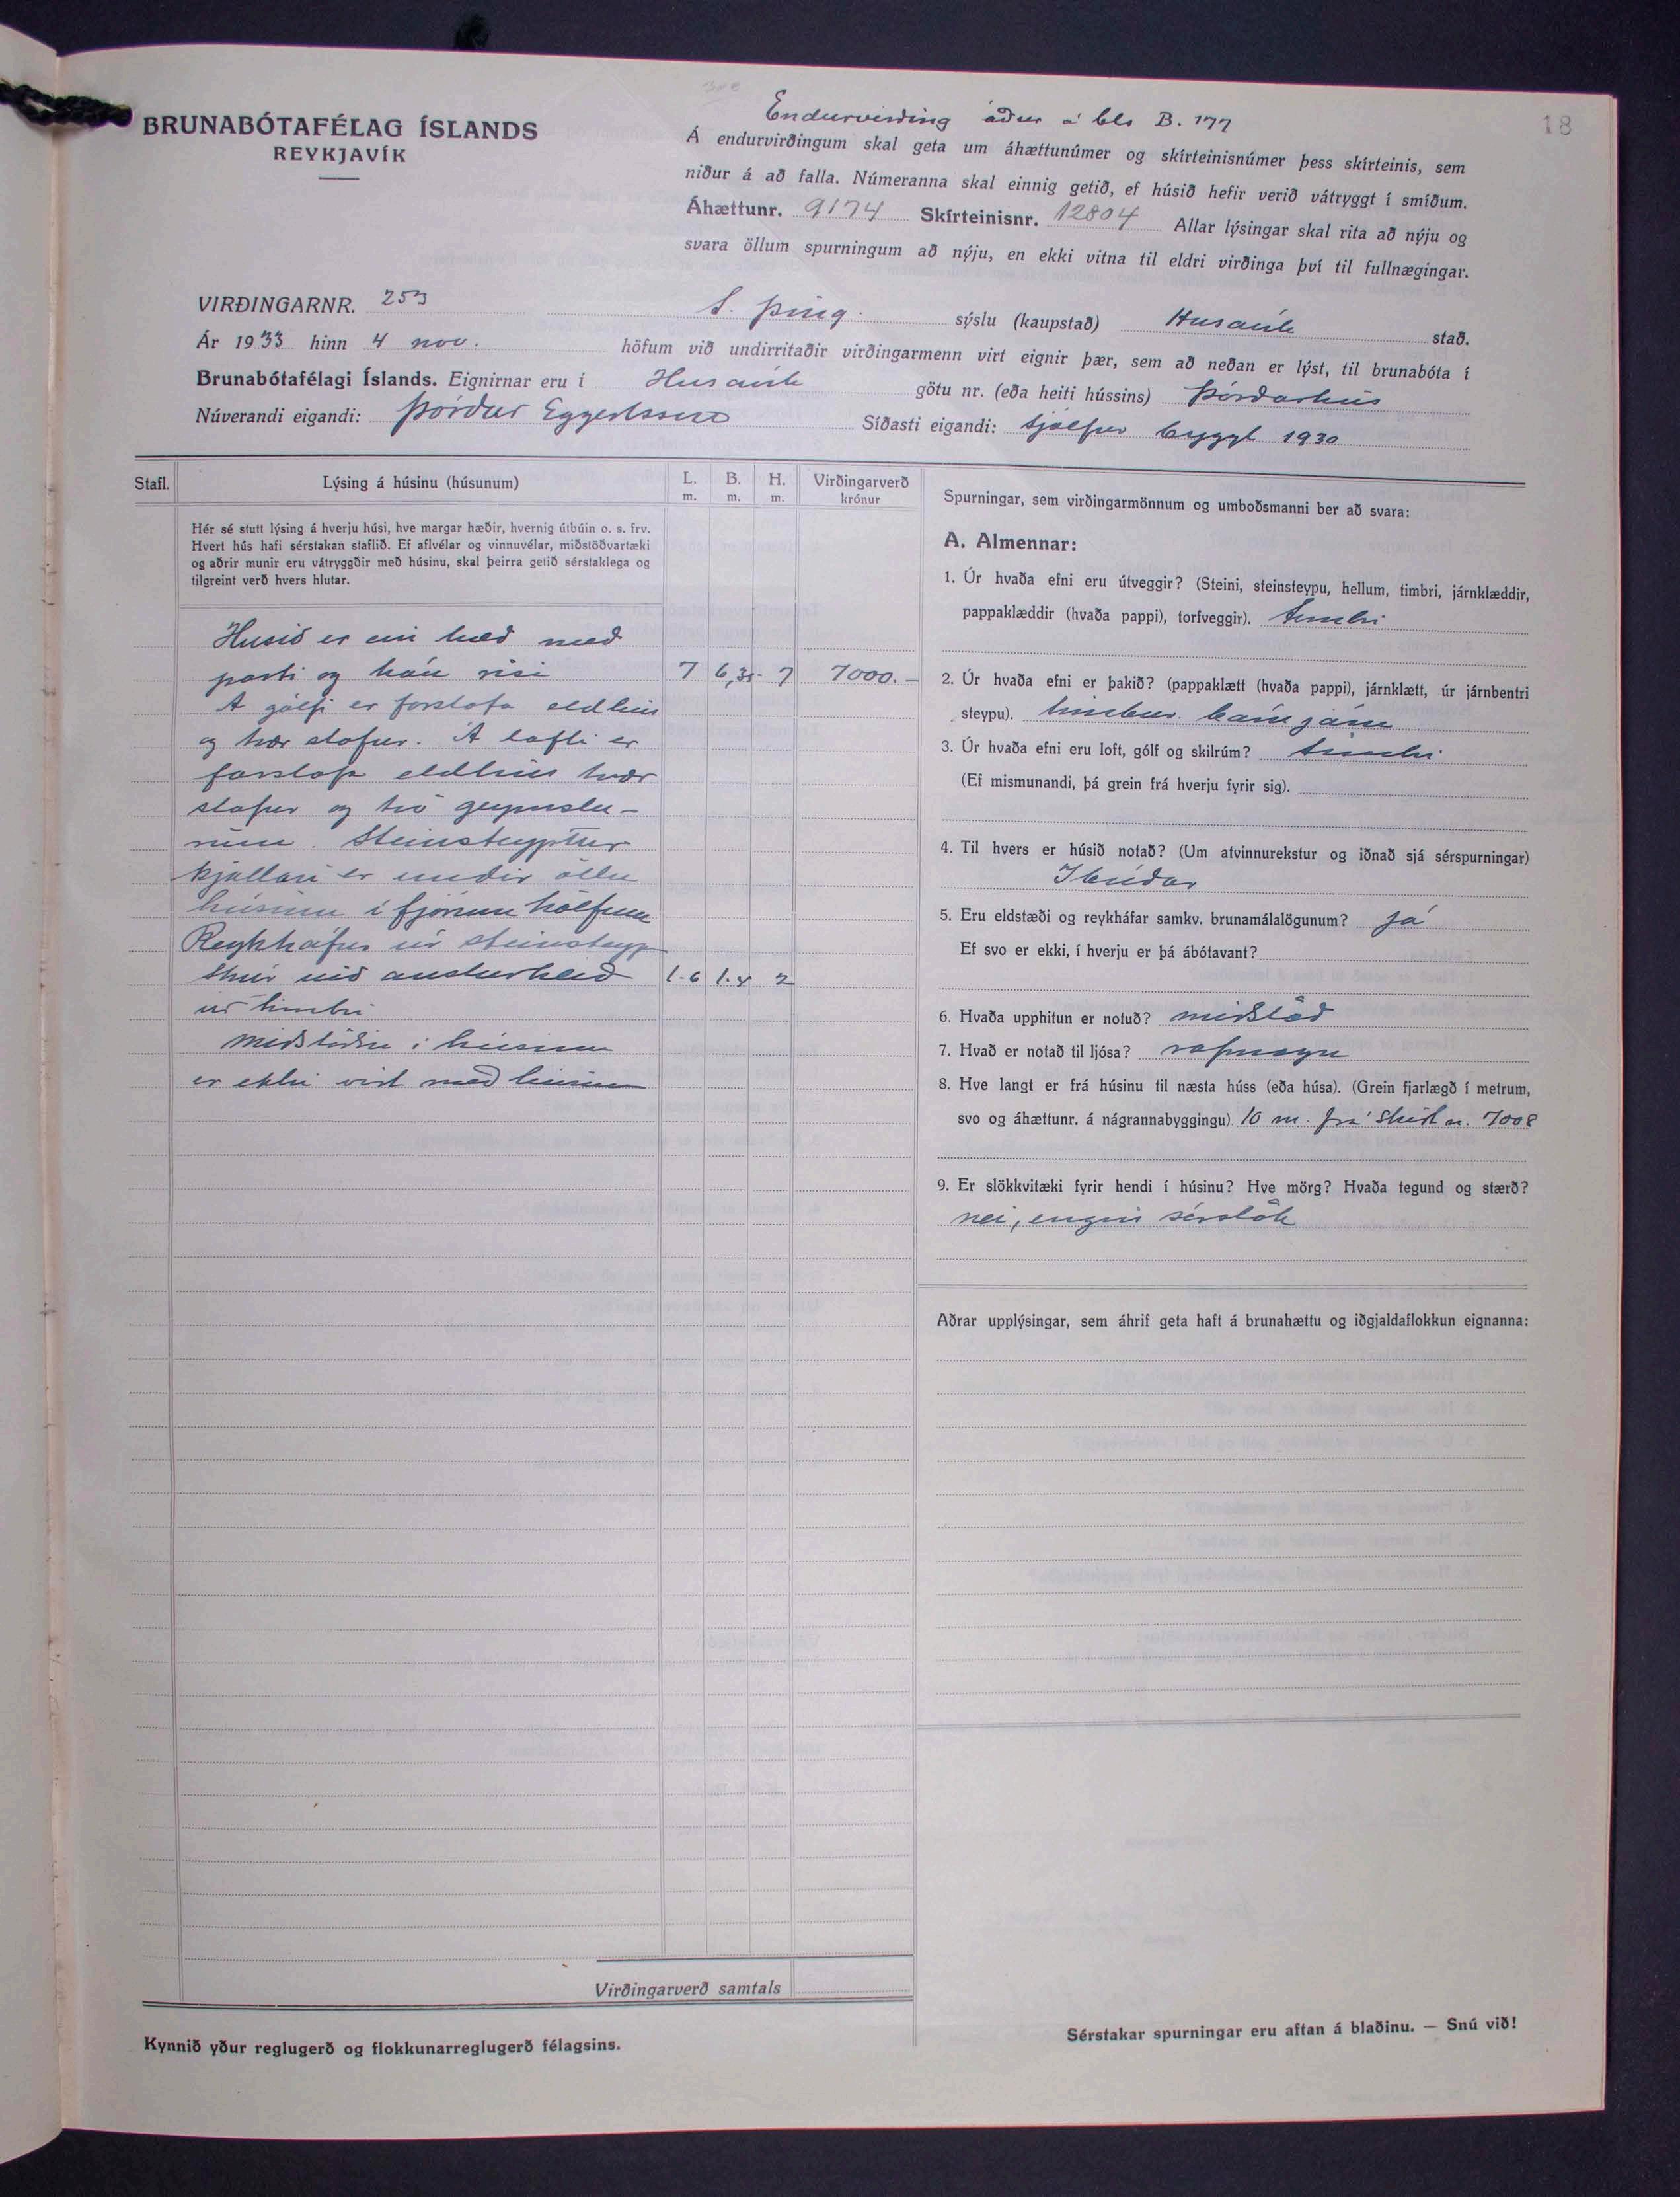 18
Endurvirding áður á bls B. 177
BRUNABÓTAFÉLAG ÍSLANDS
REYKJAVÍK
Á endurvirðingum skal geta um áhættunúmer og skírteinisnúmer þess skírteinis, sem
niður á að falla. Númeranna skal einnig getið, ef húsið hefir verið vátryggt í smíðum.
Áhættunr. 9174 Skírteinisnr. 12804 Allar lýsingar skal rita að nýju og
svara öllum spurningum að nýju, en ekki vitna til eldri virðinga því til fullnægingar.
VIRÐINGARNR. 253 S. Þing. sýslu (kaupstað) Húsavík stað.
Ár 1933 hinn 4 nov. höfum við undirritaðir virðingarmenn virt eignir þær, sem að neðan er lýst, til brunabóta í
Brunabótafélagi Íslands. Eignirnar eru í Húsavík götu nr. (eða heiti hússins) Þórðarhús
Núverandi eigandi: Þórður Eggertsson Síðasti eigandi: sjálfur byggt 1930
Stafl. Lýsing á húsinu (húsunum) L. m. B. m. H. m. Virðingarverð krónur
Hér sé stutt lýsing á hverju húsi, hve margar hæðir, hvernig útbúin o. s. frv.
Hvert hús hafi sérstakan staflið. Ef aflvélar og vinnuvélar, miðstöðvartæki
og aðrir munir eru vátryggðir með húsinu, skal þeirra getið sérstaklega og
tilgreint verð hvers hlutar.
Húsið er ein hæð með
porti og háu risi 7 6,35 7 7000.—
Á gólfi er forstofa eldhús
og tvær stofur. Á lofti er
forstofa eldhús tvær
stofur og tvö geymslu-
rúm. Steinsteyptur
kjallari er undir öllu
húsinu í fjórum hólfum
Reykháfur úr steinsteyp
Skúr við austurhlið 1.6 1.4 2
úr timbri
Miðstöðin í húsinu
er ekki virt með húsinu
Virðingarverð samtals
Kynnið yður reglugerð og flokkunarreglugerð félagsins.
Spurningar, sem virðingarmönnum og umboðsmanni ber að svara:
A. Almennar:
1. Úr hvaða efni eru útveggir? (Steini, steinsteypu, hellum, timbri, járnklæddir,
pappaklæddir (hvaða pappi), torfveggir). timbri
2. Úr hvaða efni er þakið? (pappaklætt (hvaða pappi), járnklætt, úr járnbentri
steypu). timbur bárujárn
3. Úr hvaða efni eru loft, gólf og skilrúm? timbri
(Ef mismunandi, þá grein frá hverju fyrir sig).
4. Til hvers er húsið notað? (Um atvinnurekstur og iðnað sjá sérspurningar)
Íbúðar
5. Eru eldstæði og reykháfar samkv. brunamálalögunum? já
Ef svo er ekki, í hverju er þá ábótavant?
6. Hvaða upphitun er notuð? miðstöð
7. Hvað er notað til ljósa? rafmagn
8. Hve langt er frá húsinu til næsta húss (eða húsa). (Grein fjarlægð í metrum,
svo og áhættunr. á nágrannabyggingu) 10 m. frá Skírt n. 7008
9. Er slökkvitæki fyrir hendi í húsinu? Hve mörg? Hvaða tegund og stærð?
nei, engin sérstök
Aðrar upplýsingar, sem áhrif geta haft á brunahættu og iðgjaldaflokkun eignanna:
Sérstakar spurningar eru aftan á blaðinu. — Snú við!